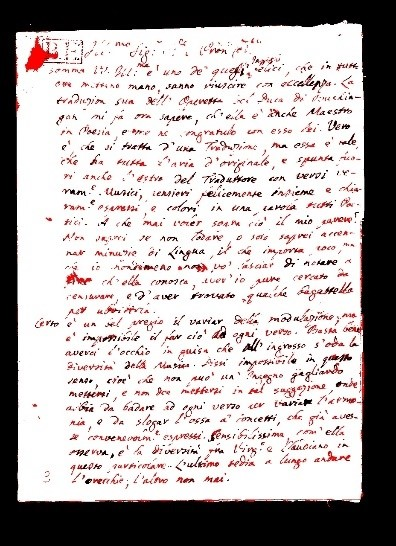 Ill.mo Sig.r
somma V.S. Ill.ma è uno de' quegli Ingegni felici, che in tutto
ove mettino mano, sanno riuscire con eccellenza. La
traduzion sua dell' Operetta del Duca di
mi fa ora sapere, ch'ella è anche Maestro
in Poesia e me ne congratulo con esso lei. Vero
è che si tratta d'una Traduzione, ma essa è tale
che ha tutta l'aria d'originale, e spunta fuo-
ri anche l'estro del Traduttore con versi ve-
ram.e Musici, pensieri felicemente insieme e chia-
ram.e espressi e colori, in una parola tutti Poe-
tici. A che mai voler sopra ciò il mio parere?
Non saprei se non lodare o solo saprei accen-
nar minuzie di Lingua, il che importa poco,
ciò io nondimeno non vo' lasciar di notare a
ch'ella conosca, aver io pure cercato da
censurare, e d'aver trovato qualche bagattella
per
Certo è un bel pregio il variar della modulazione, ma
è impossibile il far ciò ad ogni verso. Basta bene
averci l'occhio in guisa che all' ingrosso s'oda la
diversità della Musica. Dissi impossibile in questo
senso, cioè che non può un' Ingegno gagliardo
mettersi, e non dee mettersi in tal suggezione onde
abbia da badare ad ogni verso per variar l'armo-
nia, e da slogar l'ossa a' concetti, che già aves-
se convenevolm.e espressi. Sensibilissima, com' ella
osserva, è la diversità fra Virg.o e Claudiano in
questo particolare. L'ultimo tedia a lungo andare
l'orecchio; l'altro non mai.
3